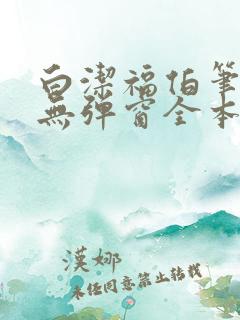 白潔福伯筆
無彈窗全本
漢娜
未經同意禁止轉載